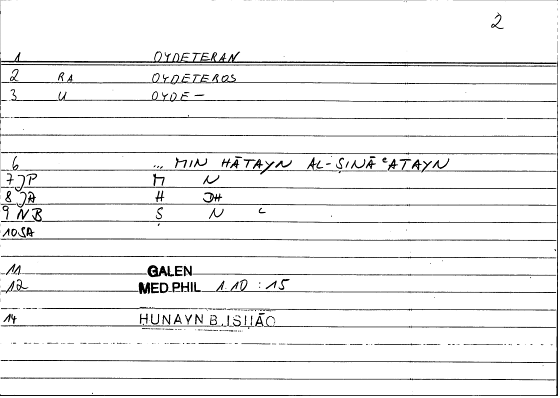 2
1 OYDETERAN
2 RA OYDETEROS
3 U OYDE—
6 ... MIN HĀTAYN AL-ṢINĀʿATAYN
7 JP M N
8 JA H
9 NB Ṣ N ʿ
10 SA
11 GALEN
12 MED PHIL 1.10 : 15
14 HUNAYN B. ISḤĀQ